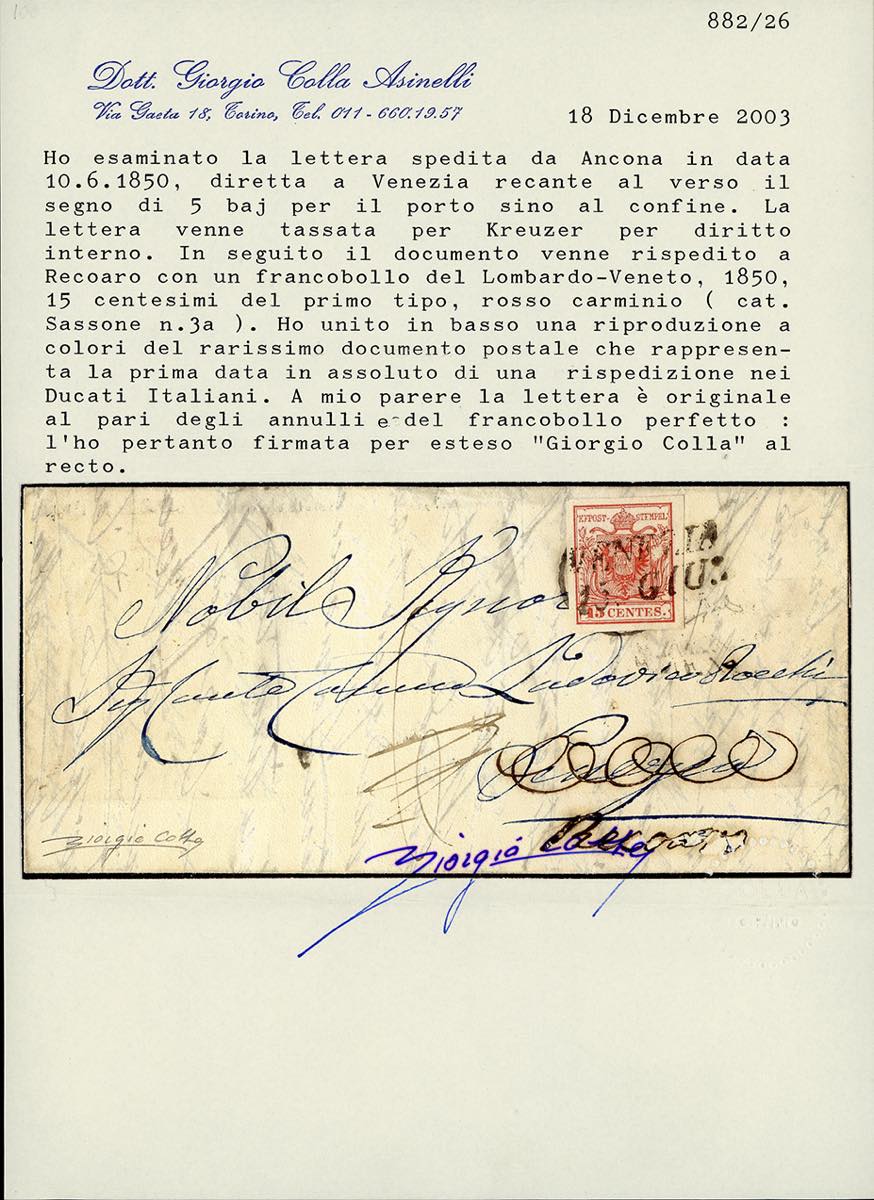 882/26
Dott. Giorgio Colla Asinelli
Via Gaeta 18, Torino, Tel. 011 - 660.19.57
18 Dicembre 2003
Ho esaminato la lettera spedita da Ancona in data
10.6.1850, diretta a Venezia recante al verso il
segno di 5 baj per il porto sino al confine. La
lettera venne tassata per Kreuzer per diritto
interno. In seguito il documento venne rispedito a
Recoaro con un francobollo del Lombardo-Veneto, 1850,
15 centesimi del primo tipo, rosso carminio ( cat.
Sassone n.3a ). Ho unito in basso una riproduzione a
colori del rarissimo documento postale che rappresen-
ta la prima data in assoluto di una rispedizione nei
Ducati Italiani. A mio parere la lettera è originale
al pari degli annulli e del francobollo perfetto :
l'ho pertanto firmata per esteso "Giorgio Colla" al
recto.
KKPOST-STEMPEL
VENEZIA
GIU:
15 CENTES.
Nobil Signor
Ludovico Rocchi
Giorgio Colla
Giorgio Colla